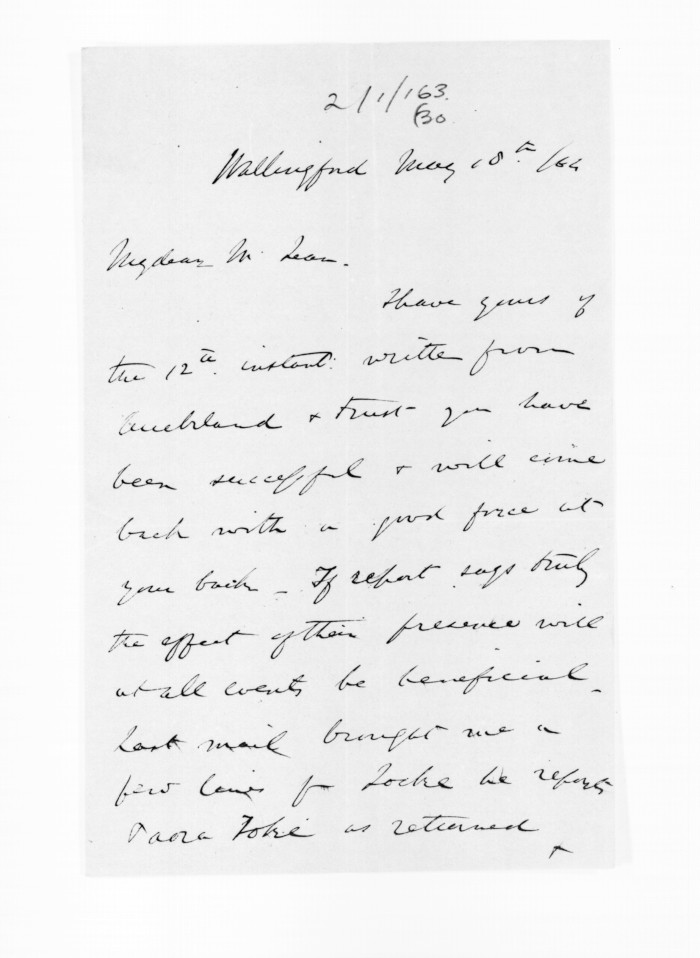 2/1/163.
630
Wallingford May 18th /64
My dear McLean.
I have yours of
the 12th instant written from
Auckland & trust you have
been successful & will come
back with a good force at
your back _ If report says truly
the effect of their presence will
at all events be beneficial _
Last mail brought me a
few lines fr Locke he reports
Paora Toki as returned
&